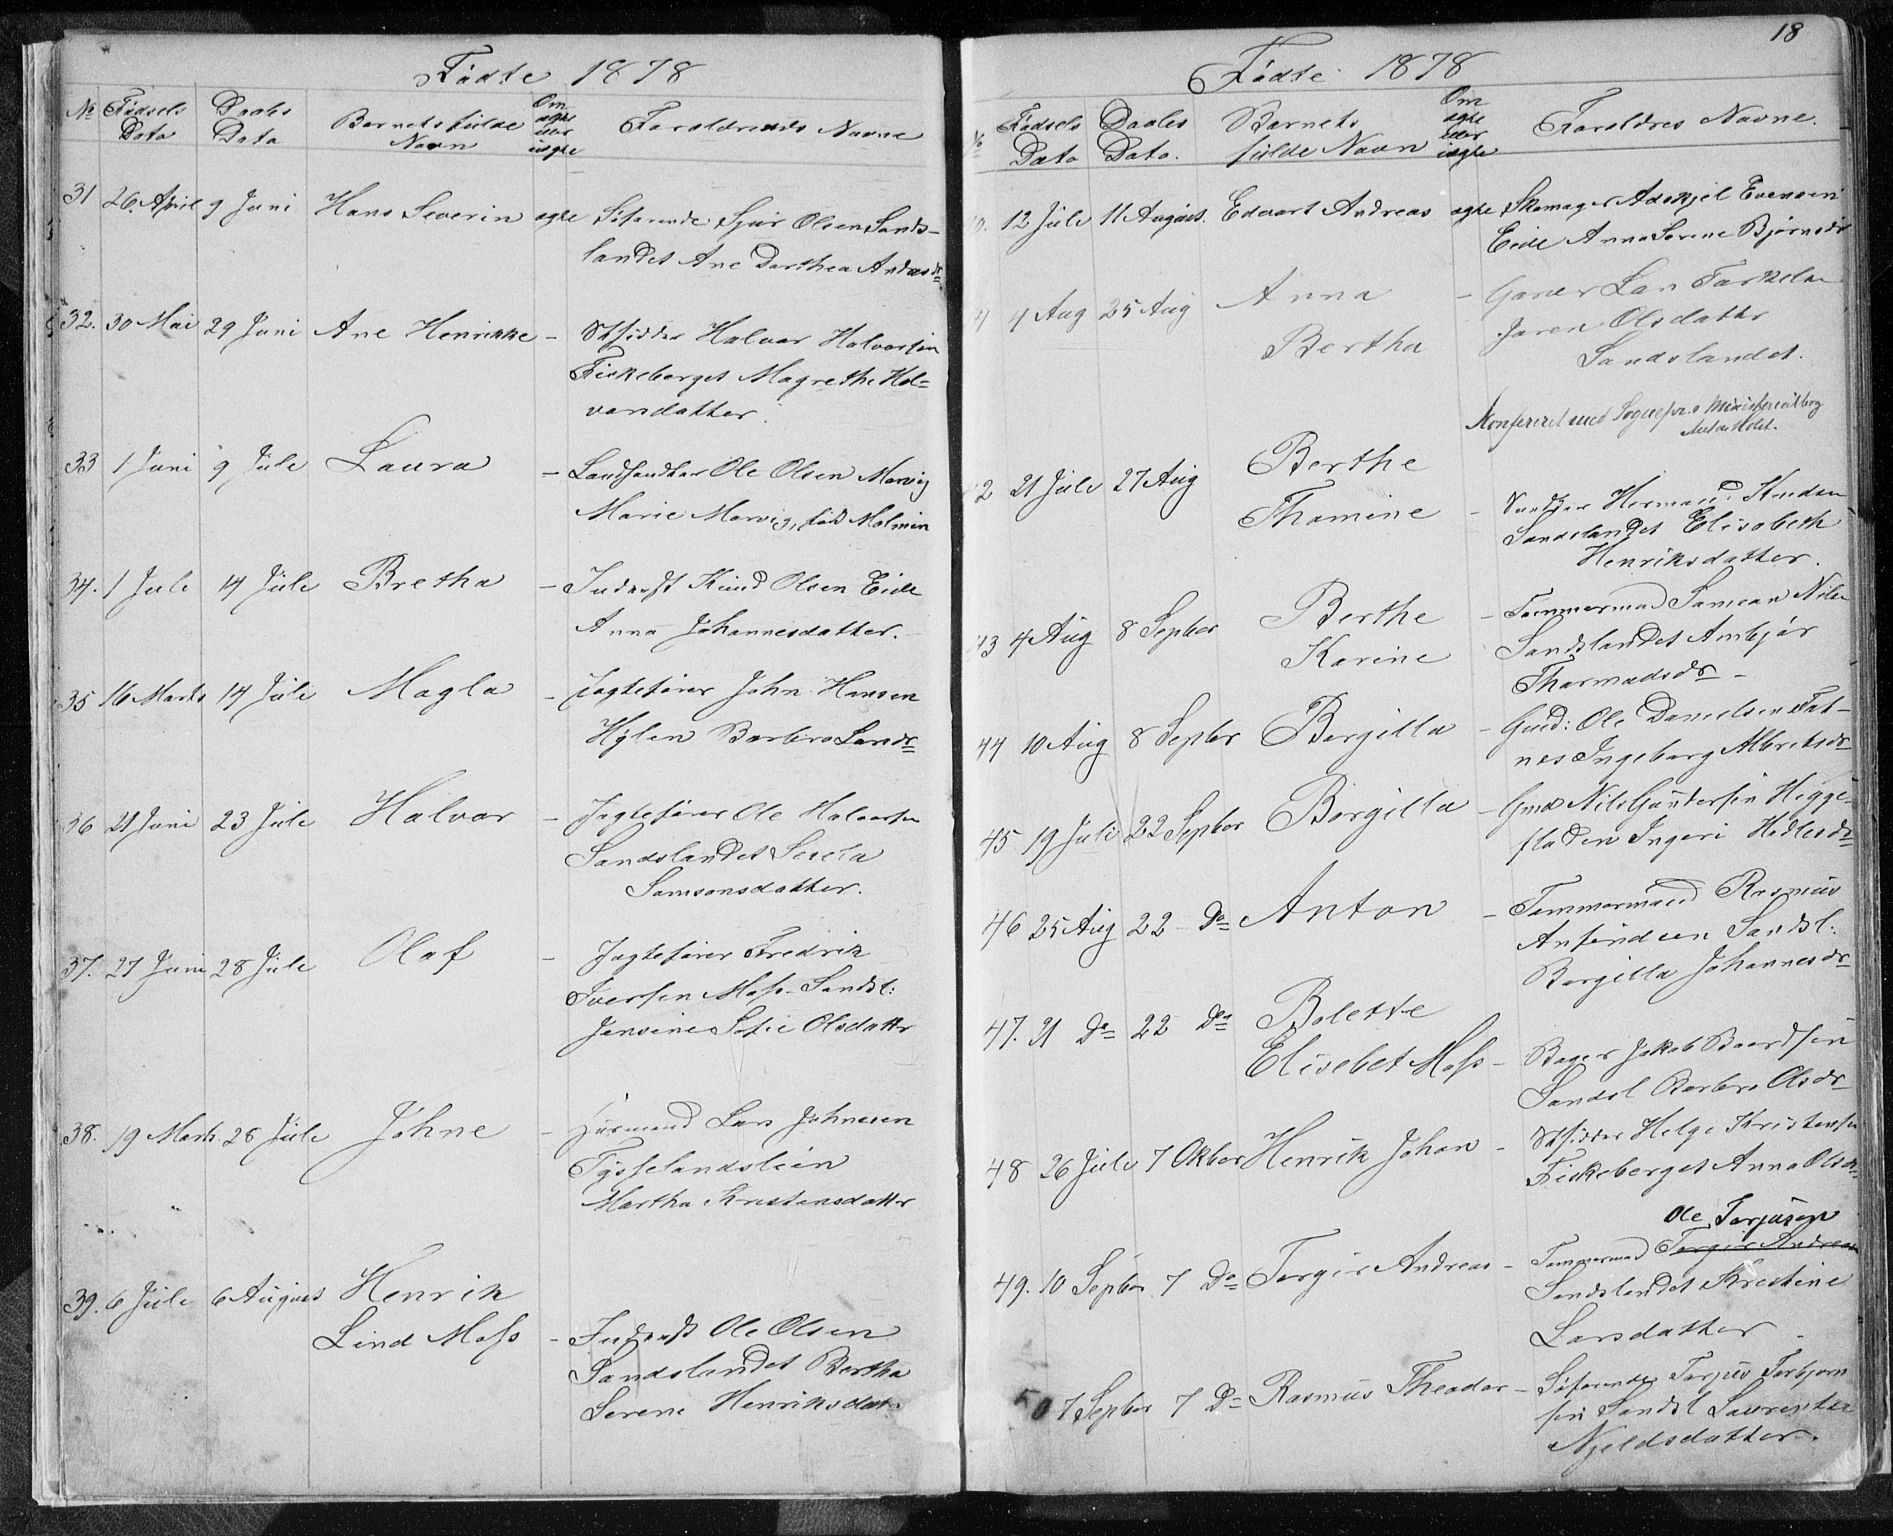 Fødte 1878
No Fødsels Dato Daabs Dato Barnets fulde Navn Om ægte eller uægte Forældrenes Navne
31 26. April 9 Juni Hans Severin ægte Søfarende Sjur Olsen Sands-
landet Ane Dorthea Andrsdr
32. 30 Mai 29 Juni Ane Henrikke - Halvor Halvorsen
Fiskeberget Magrethe Hal-
vorsdatter.
33 1 Juni 9 Jule Laura - Landhandler Ole Olsen Marvig
Marie Marvig, fød Malmin
34. 1 Jule 14 Jule Bretha - Inderst Knud Olsen Eide
Anna Johannesdatter.
35 16 Marts 14 Jule Magla - Jagtefører John Hansen
Hylen Barbro Larsdr
36 21 Juni 23 Jule Halvor - Jagtefører Ole Halvorsen
Sandslandet
Samsonsdatter.
37. 27 Juni 28 Jule Olaf - Jagtefører Fredrik
Iversen Moss Sandsl:
Jensine Sofie Olsdattr
38. 19 Marts 28 Jule Johne - Husmand Lars Johnesen
Tysselandslien
Martha Kristensdattr
39. 6 Jule 6 August Henrik
Lind Moss - Inderst Ole Olsen
Sandslandet Bertha
Serene Henriksdatr
18
Fødte 1878
No Fødsels Dato Daabs Dato. Barnets fulde Navn Om ægte eller uægte Forældres Navne.
12 Jule 11 August. Edvart Andreas ægte Skomager Adskjel Evensen
Eide Anna Serene Bjørnsdr
4 Aug 25 Aug Anna - Garver Lars Torkelsen
Bertha Olsdatter
Sandslandet.
Konfereret med Sognepr.s Ministerialbog
2 21 Jule 27 Aug Berthe
Thomine - Herman Knudsen
Sandslandet Elisabeth
Henriksdatter.
43 4 Aug 8 Septbr Berthe - Tømmermand Samson Nilsen
Karine Sandslandet Ambjør
Thormodsdr -
44 10 Aug 8 Septbr Borgilla - Gmd: Ole Danielsen Fat-
nes Ingeborg Albretsdr
45 19 Jule 22 Septbr Borgilla - Gmd Nils Gundersen Hegge-
fladen Ingeri Hedlesdr
46 25 Aug 22 Do Anton - Tømmermand Rasmus
Anfindsen Sandsl:
Borgilla Johannesdr
47. 21 Do 22 Do Bolette
Elisebet Moss - Bager Jakob Baardsen
Sandsl Barbro Olsdr
48 26 Jule 7 Oktbor Henrik Johan - Helge Kristensen
Fiskeberget Anna Olsdr
Ole Torjusen
49. 10 Septbr 7 Do Torger Andreas - Tømmermand Torger Andreas
Sandslandet Kristine
Larsdatter -
50 7 Septbr 7 Do Rasmus Theodor - Søfarende Torjus Torbjørn
sen Sandsl
Njeldsdatter.